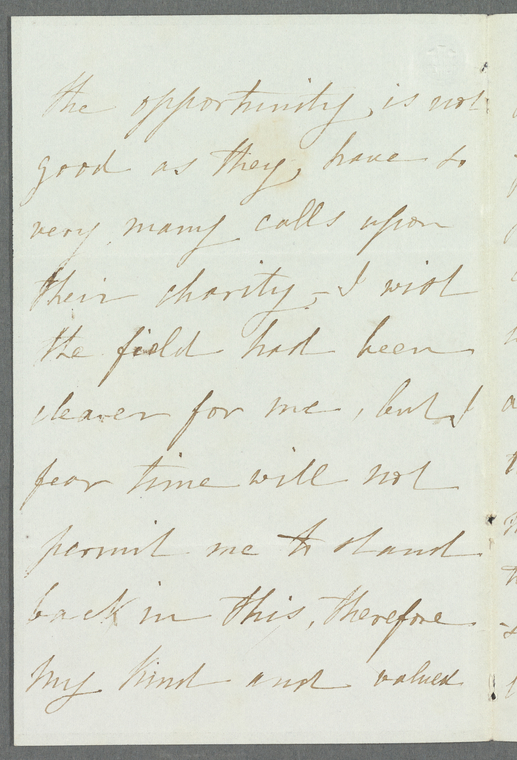 the opportunity, is not
good as they, have so
very many calls upon
their charity, - I wish
the field had been
clearer for me, but I
fear time will not
permit me to stand
back in this, therefore
my kind and valued